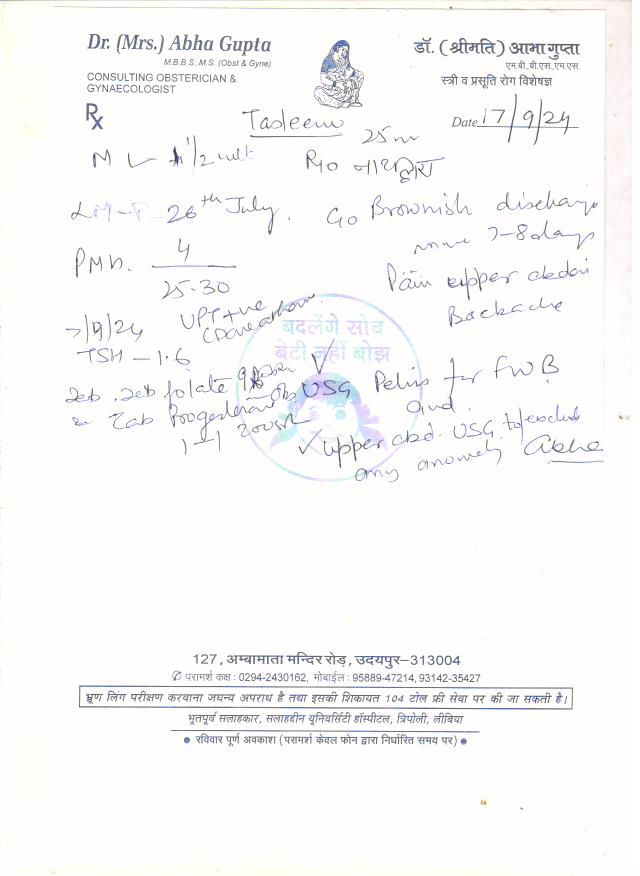 Dr. (Mrs.) Abha Gupta
M.B.B.S., M.S. (Obst & Gyne)
CONSULTING OBSTERICIAN &
GYNAECOLOGIST
डॉ. (श्रीमति) आभा गुप्ता
एम.बी.बी.एस.,एम.एस.
स्त्री व प्रसूति रोग विशेषज्ञ
Rx
Tasleem
Date 17/9/24
R/o नाथद्वारा
LMP 26th July.
C/o Brownish discharge
7-8 days
4
25-30
Pain upper
Backache
7/9/24 UPT +ve
TSH - 1.6
बदलेंगे सोच
बेटी नहीं बोझ
folate
Tab
1-1 200
✓ USG Pelvis for FWB
and
✓ upper abd. USG to exclude
any Abha
127, अम्बामाता मन्दिर रोड़, उदयपुर–313004
परामर्श कक्ष : 0294-2430162, मोबाईल : 95889-47214, 93142-35427
भ्रूण लिंग परीक्षण करवाना जघन्य अपराध है तथा इसकी शिकायत 104 टोल फ्री सेवा पर की जा सकती है।
भूतपूर्व सलाहकार, सलाहद्दीन यूनिवर्सिटी हॉस्पीटल, त्रिपोली, लीबिया
● रविवार पूर्ण अवकाश (परामर्श केवल फोन द्वारा निर्धारित समय पर) ●